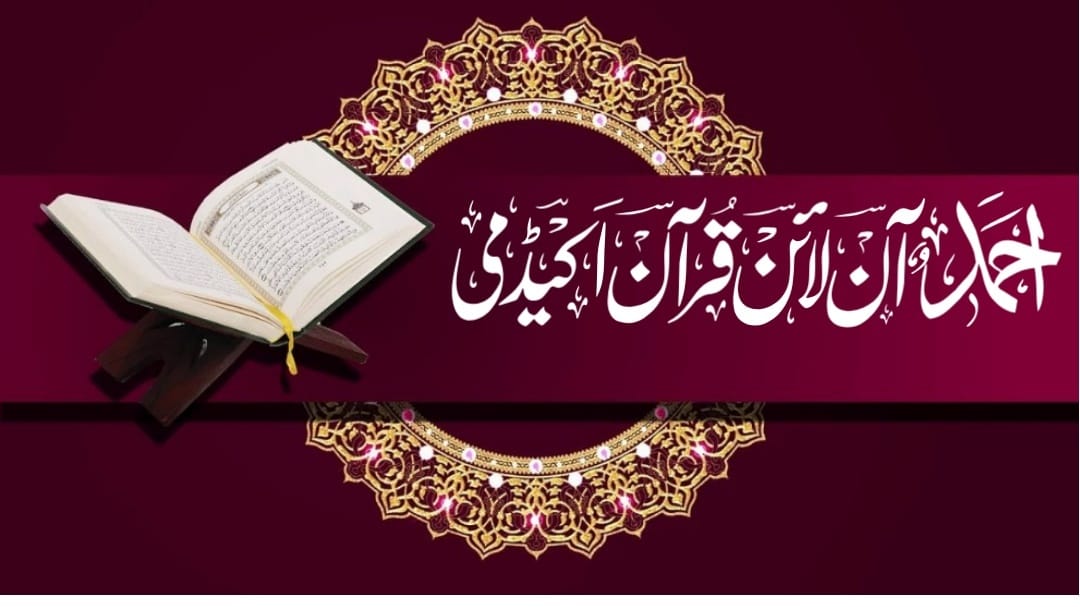 احمد آن لائن قُرآن اَکیڈمی